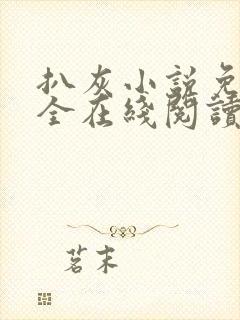 扒灰小説免
全在綫閱讀
茗末